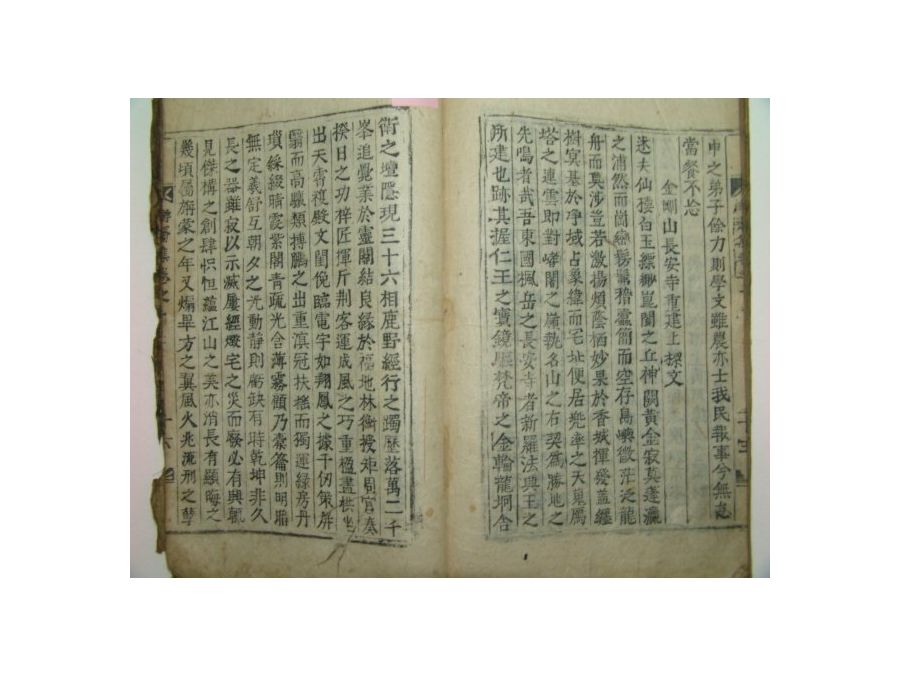 申之弟子餘力則學文雖農亦士我民哉事今無怠
當餐不忘
金剛山長安寺重建上樑文
述夫仙積白玉縹緲崑閬之丘神闕黃金寂莫蓬瀛
之浦然而崗巒稽靈簡而空存島嶼徵茫泛龍
舟而莫涉豈若激揚頹蔭栖妙果於香城揮愛蓋纏
樹冥基於淨域占象緯而宅址便居兜率之天鳧鴈
塔之連雲即對之嶺執名山之右契爲勝地之
先鳴者哉吾東國楓岳之長安寺者新羅法興王之
所建也跡其握仁王之寶鏡歷梵帝之金輪龍堈舍
衛之壇隱現三十六相鹿野經行之躅歷落萬二千
峯追覺業於靈關結良緣於福地林衡授矩周官奏
揆日之功梓匠揮斤荆客運成風之巧重楹畫栱坐
出天霄複殿文閨俛臨電宇如翔鳳之據千仞策屛
翳而高驤類搏鵬之出重溟冠扶搖而獨運綠房丹
瑣綵綴晴霞紫閣靑疏光含薄霧顧乃橐籥則明晦
無定羲舒互朝夕之光動靜則虧缺有時乾坤非久
長之器雖寂以示滅屢經燬宅之災而廢必有興輒
見傑博之創肆怳怛蘊江山之美亦消長有顯晦之
幾頃屬旃蒙之年又煽畢方之翼風火兆流刑之孽